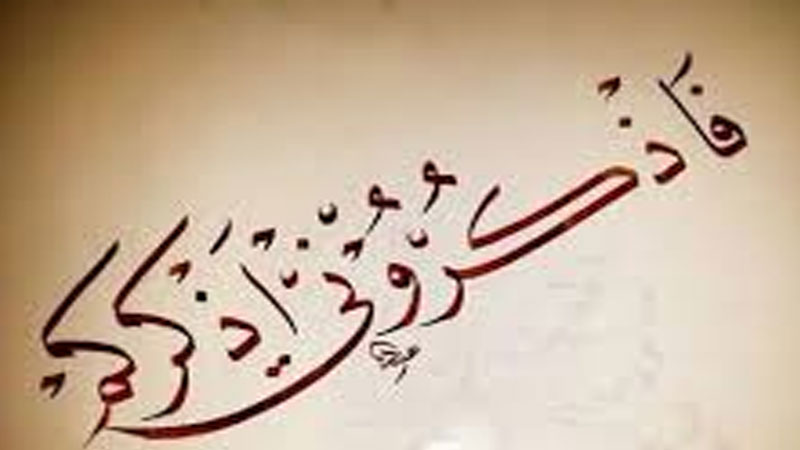 فَاذْكُرُوْنِي أَذْكُرْكُمْ